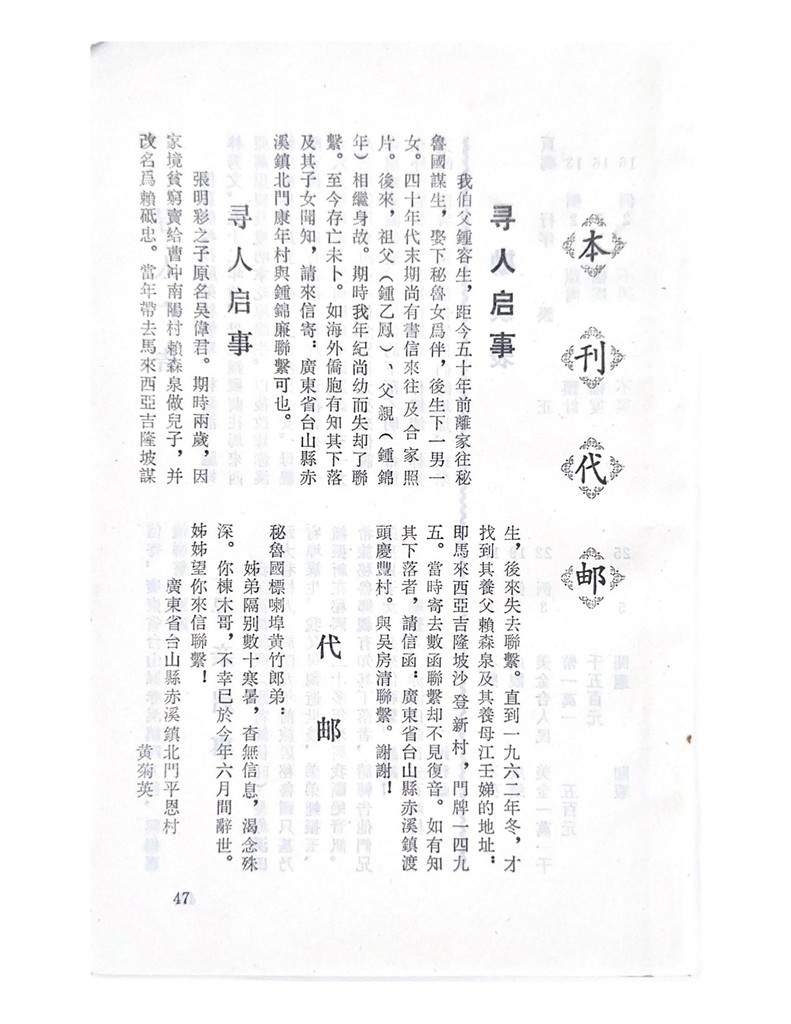 本刊代邮
寻人启事
我伯父鍾容生，距今五十年前離家往秘
魯國謀生，娶下秘魯女爲伴，後生下一男一
女。四十年代末期尚有書信來往及合家照
片。後來，祖父（鍾乙鳳）、父親（鍾錦
年）相繼身故。期時我年紀尚幼而失却了聯
繫。至今存亡未卜。如海外僑胞有知其下落
及其子女聞知，請來信寄：廣東省台山縣赤
溪鎮北門康年村與鍾錦廉聯繫可也。
寻人启事
張明彩之子原名吴偉君。期時兩歲，因
家境貧窮賣給曹冲南陽村賴森泉做兒子，并
改名爲賴砥忠。當年帶去馬來西亞吉隆坡謀
生，後來失去聯繫。直到一九六二年冬，才
找到其養父賴森泉及其養母江壬娣的地址：
即馬來西亞吉隆坡沙登新村，門牌一四九
五。當時寄去數函聯繫却不見復音。如有知
其下落者，請信函：廣東省台山縣赤溪鎮渡
頭慶豐村。與吴房清聯繫。謝謝！
代邮
秘魯國標喇埠黄竹郎弟：
姊弟隔别數十寒暑，杳無信息，渴念殊
深。你棟木哥，不幸已於今年六月間辭世。
姊姊望你來信聯繫！
廣東省台山縣赤溪鎮北門平恩村
黄菊英
47